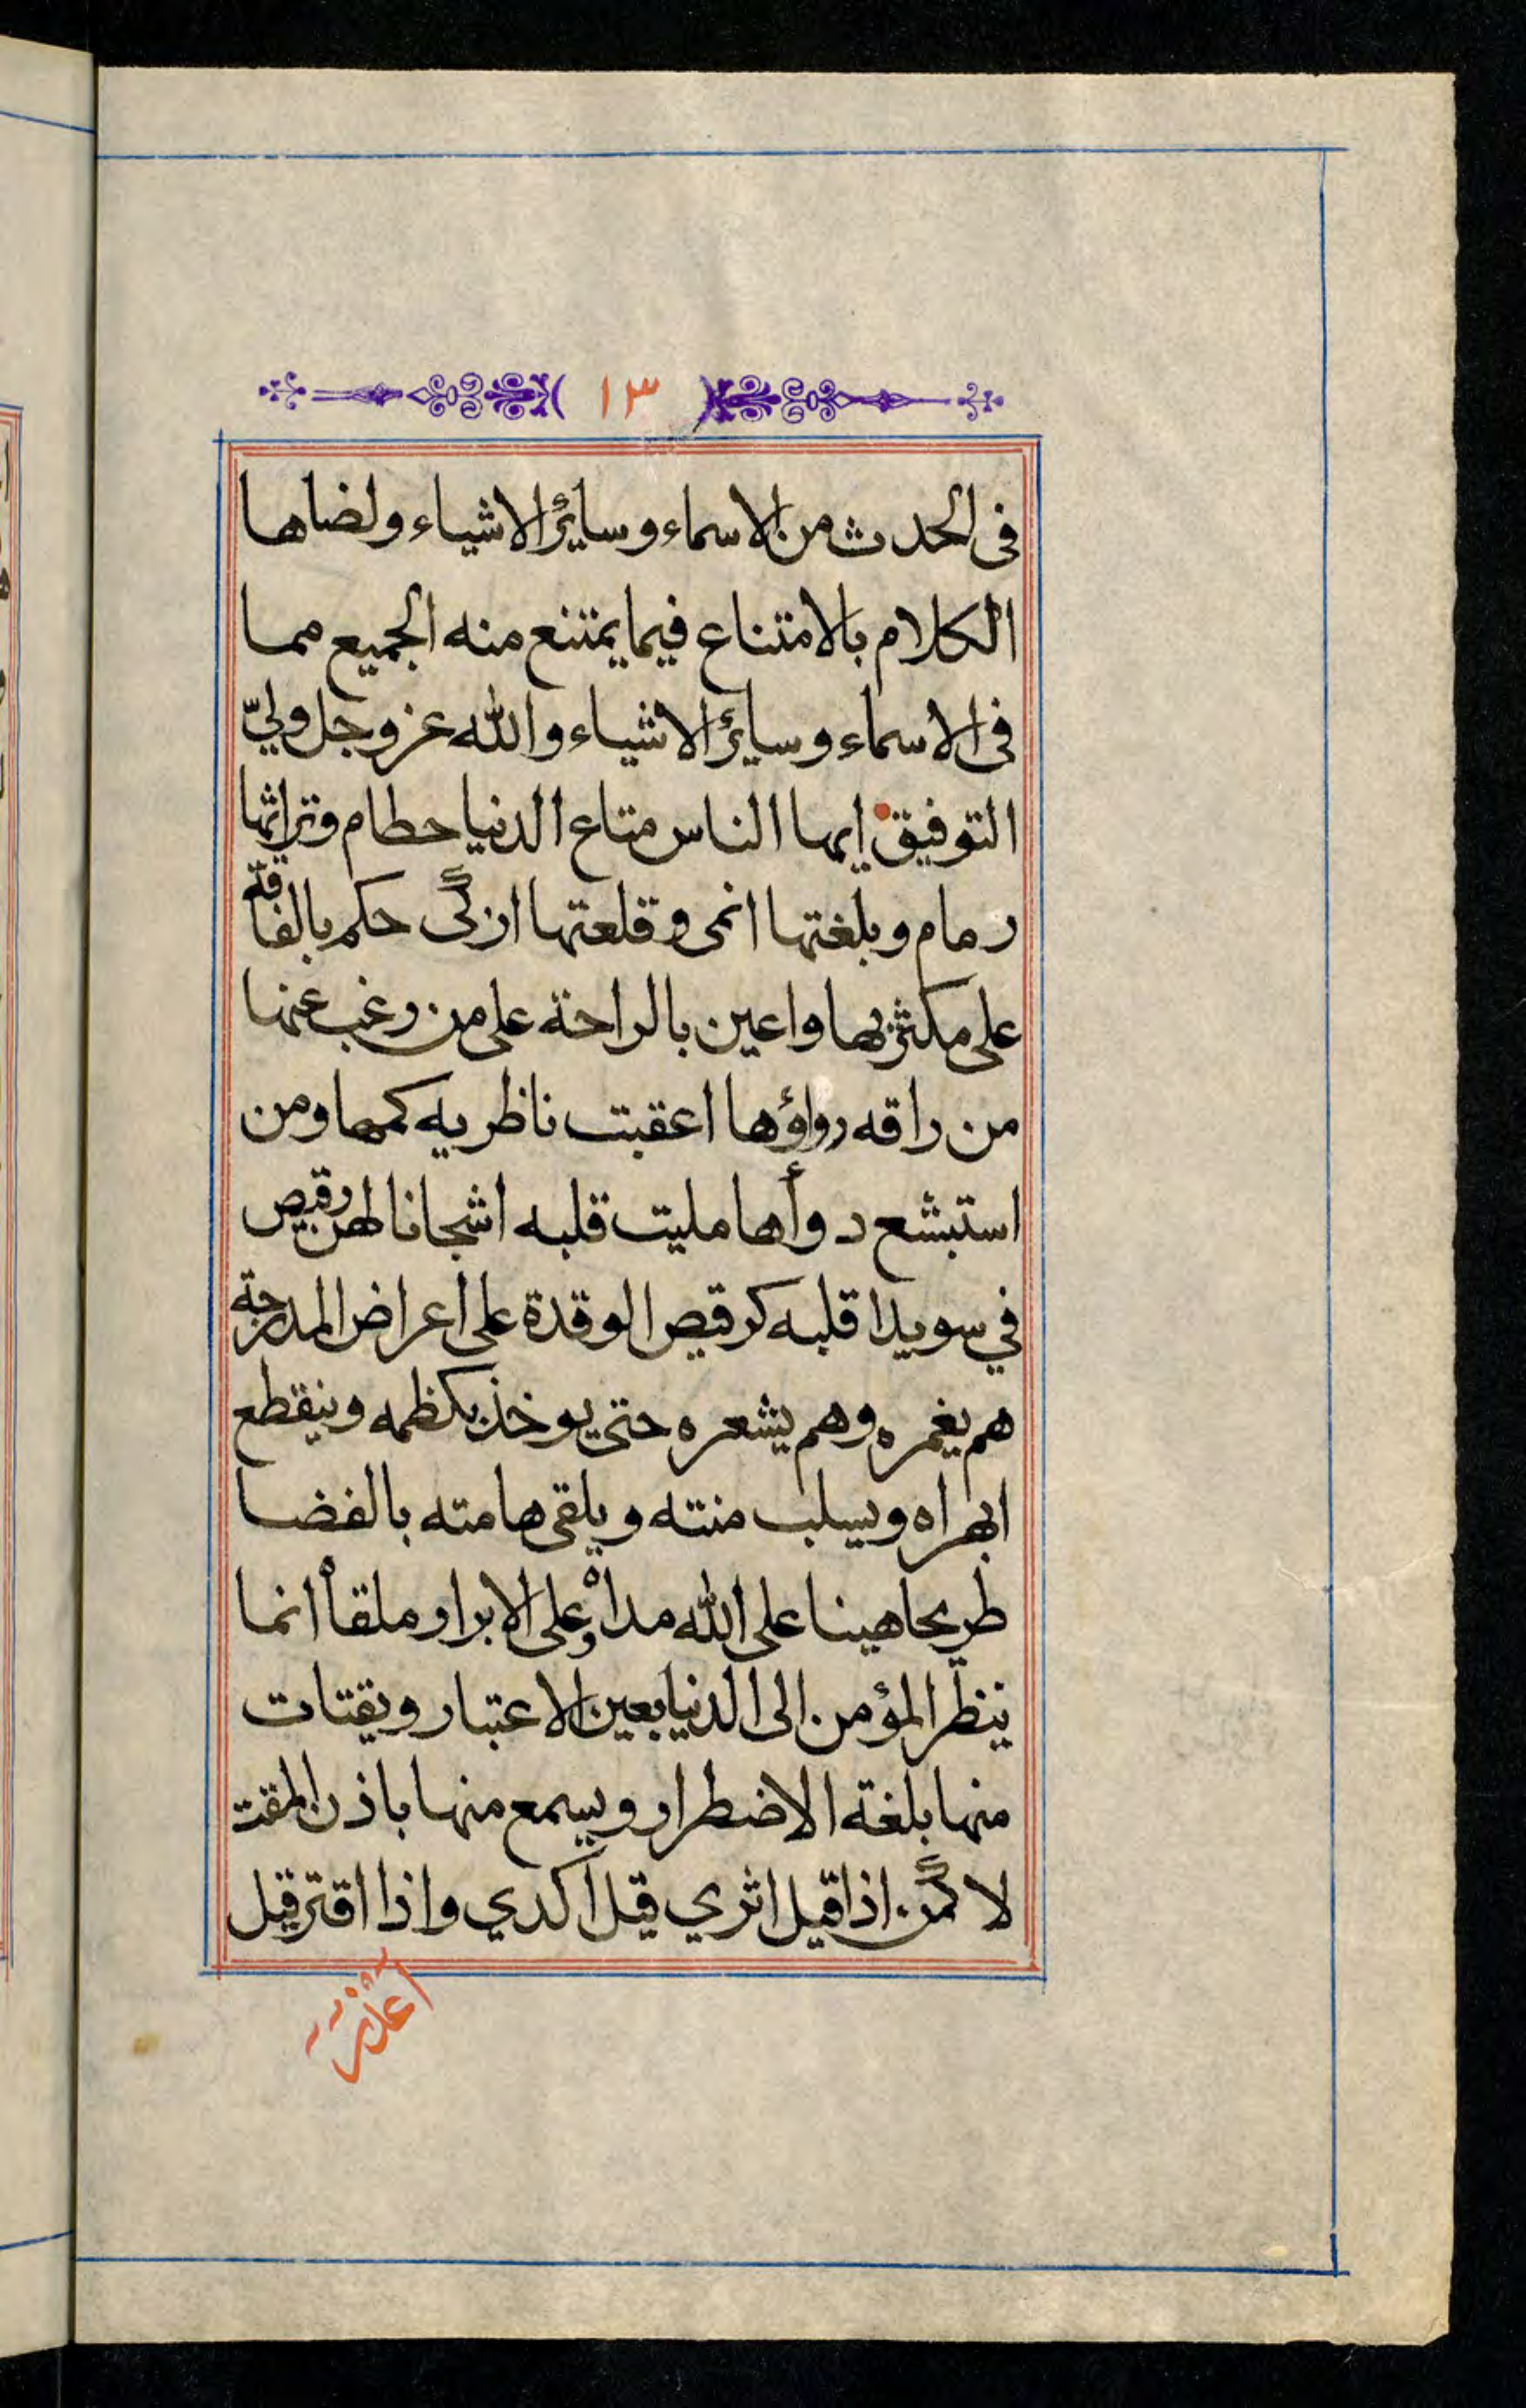 ١٣
فى الحدث من الاسماء وسايئر الاشياء ولضاها
الكلام بالامتناع فيما يمتنع منه الجميع مما
فى الاسماء وسايئر الاشياء والله عز وجل وليّ
التوفيق ايها الناس متاع الدنيا حطام وتراثها
رمام وبلغتها انمى وقلعتها ازكى حكم بالفاقة
على مكثر بها واعين بالراحة على من رغب عنها
من راقه رواؤها اعقبت ناظريه كمها ومن
استبشع دوأها مليت قلبه اشجانا لهن رقيص
في سويدا قلبه كرقيص الوقدة على اعراض المدرجة
هم يغمره وهم يشعره حتى يوخذ بكظمه وينقطع
ابهراه ويسلب منته ويلقى هامته بالفضا
طريحا هينا على الله مداه وعلى الابرار ملقاه انما
ينظر المؤمن الى الدنيا بعين الاعتبار ويقتات
منها بلغة الاضطرار ويسمع منها باذن المقت
لا كمن اذا قيل اثري قيل اكدي واذا اقتر قيل